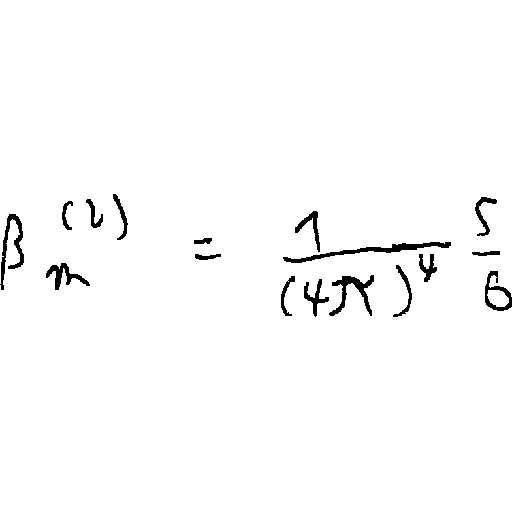 β_m^{(2)} = \frac{1}{(4π)^4} \frac{5}{6}